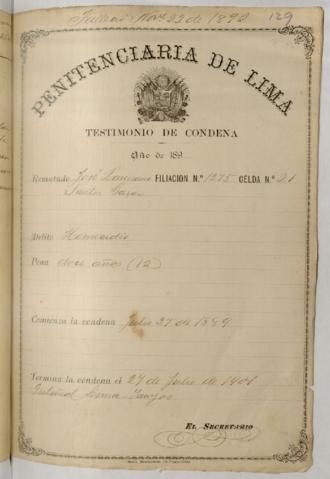 Nov. 22 de 1892 129
PENITENCIARIA DE LIMA
TESTIMONIO DE CONDENA
Año de 189
Rematado José FILIACION N.º 1275 CELDA N.º 21
Delito Homicidio
Pena doce años (12)
Comienza la condena Julio 27 de 1889
Termina la condena el 27 de Julio de 1901
EL SECRETARIO